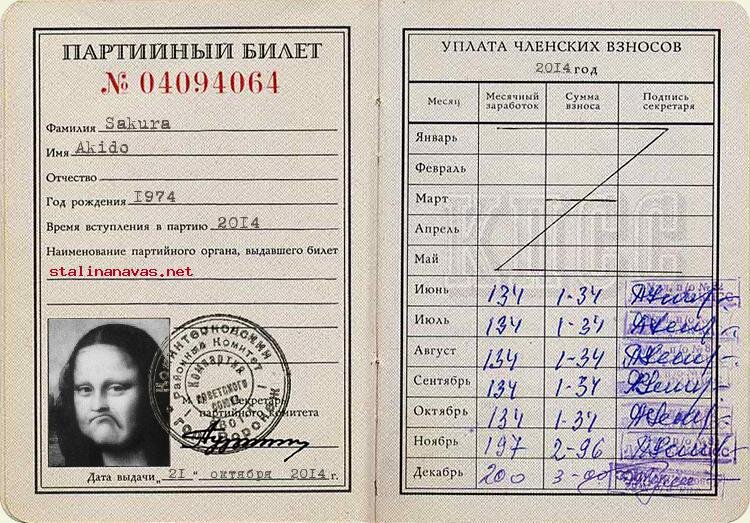 ПАРТИЙНЫЙ БИЛЕТ
№ 04094064
Фамилия Sakura
Имя Akido
Отчество
Год рождения 1974
Время вступления в партию 2014
Наименование партийного органа, выдавшего билет
stalinanavas.net
Коминтерновский
Районный Комитет
Компартия
Советского
Союза
М. П. Секретарь
партийного комитета
Дата выдачи „21“ октября 2014 г.
УПЛАТА ЧЛЕНСКИХ ВЗНОСОВ
2014 год
Месяц Месячный заработок Сумма взноса Подпись секретаря
Январь
Февраль
Март
Апрель
Май
КПСС
Июнь 134 1-34
Июль 134 1-34
Август 134 1-34
Сентябрь 134 1-34
Октябрь 134 1-34
Ноябрь 197 2-96
Декабрь 200